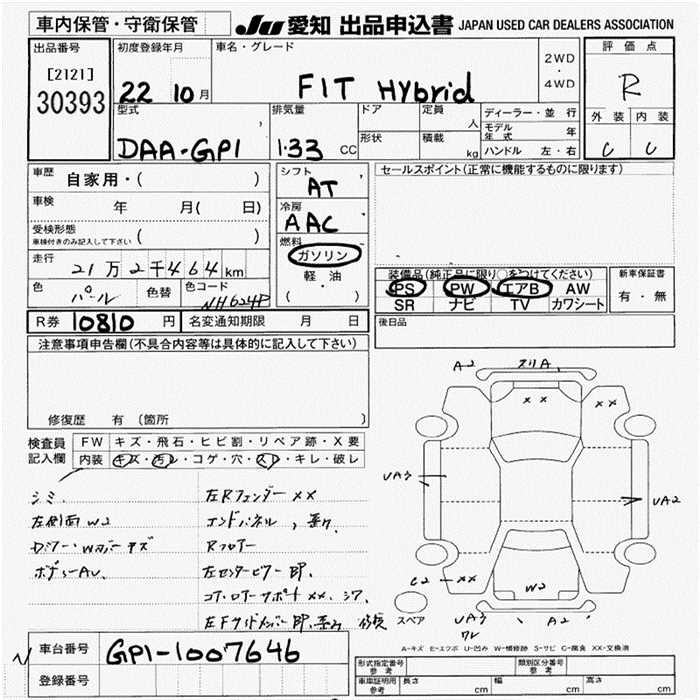 車内保管・守衛保管
JU 愛知 出品申込書 JAPAN USED CAR DEALERS ASSOCIATION
出品番号
[2121]
30393
初度登録年月
22 10月
車名・グレード
FIT Hybrid
2WD
・
4WD
評価点
R
外装 内装
C C
型式
DAA-GP1
排気量
1.33 CC
ドア
定員
人
形状
積載
kg
ディーラー・並行
モデル年式 年
ハンドル 左・右
車歴
自家用・( )
車検
年 月( 日)
受検形態
車検付きのみ記入して下さい ( )
走行
21万2千464km
色 パール 色替 色コード NH624P
シフト
AT
冷房
AAC
燃料
ガソリン
軽・油
( ・ )
セールスポイント(正常に機能するものに限ります)
装備品(純正品に限り○をつけてください)
PS PW エアB AW
SR ナビ TV カワシート
新車保証書
有・無
R券 10810 円 名変通知期限 月 日
後日品
注意事項申告欄(不具合内容等は具体的に記入して下さい)
修復歴 有 〔箇所 〕
検査員記入欄
FW キズ・飛石・ヒビ割・リペア跡・X要
内装 キズ・汚レ・コゲ・穴・スレ・キレ・破レ
シミ
左側面W2
ボディーAU
左Rフェンダー XX
エンドパネル、
Rフロアー
左センターピラー
A2
XX
XX
UA3
UA2
C2
XX
W2
UA3
A2
スペア
A-キズ E-エクボ U-凹み W-補修跡 S-サビ C-腐食 XX-交換済
車台番号
GP1-1007646
登録番号
形式指定番号 参考
類別区分番号 参考
車庫証明用 参考 長さ cm 幅 cm 高さ cm